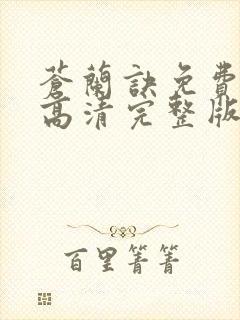 蒼蘭訣免費
高清完整版
百里菁菁